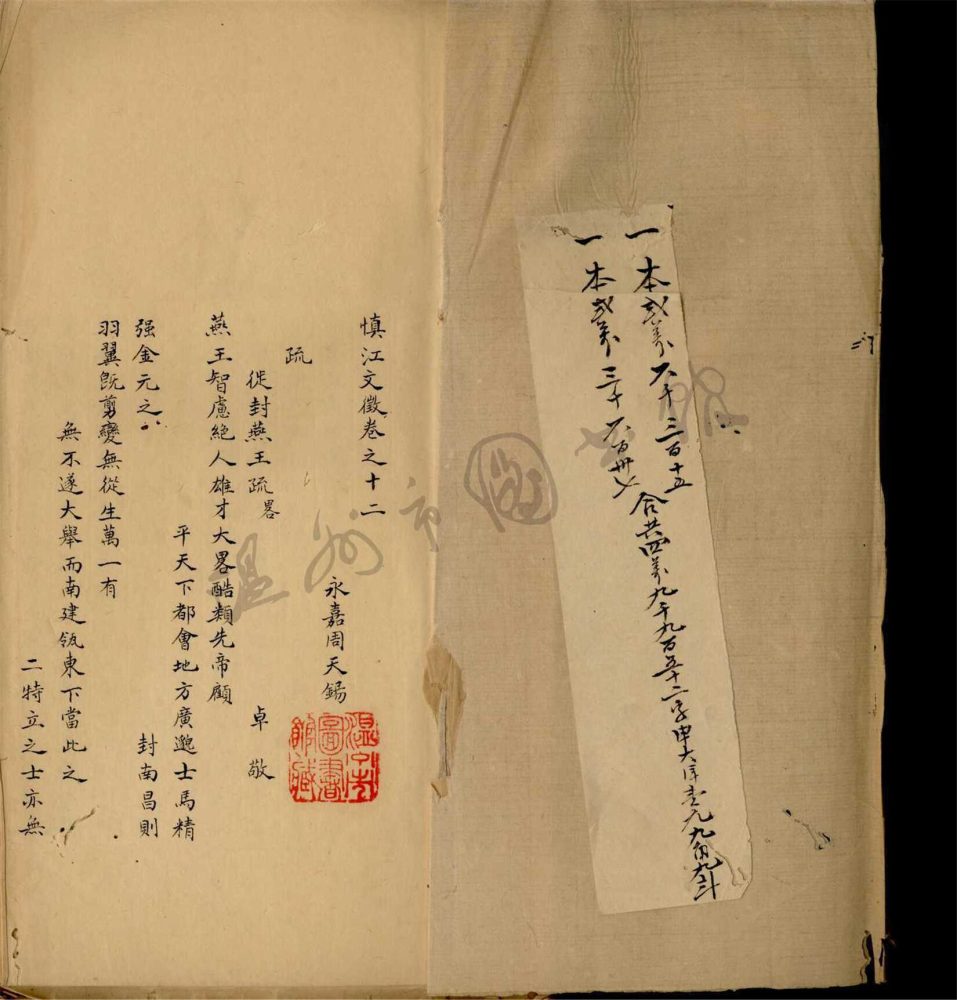 一本弍萬六千三百十五
一本弍萬三千六百卅七
合共四萬九千九百五十二字
慎江文徵卷之十二
永嘉周天錫
疏
徙封燕王疏畧
卓敬
燕王智慮絕人雄才大畧酷類先帝顧
平天下都會地方廣邈士馬精
强金元之
封南昌則
羽翼旣剪變無從生萬一有
無不遂大舉而南建瓴東下當此之
二特立之士亦無
溫州市圖書館
溫州圖書館藏